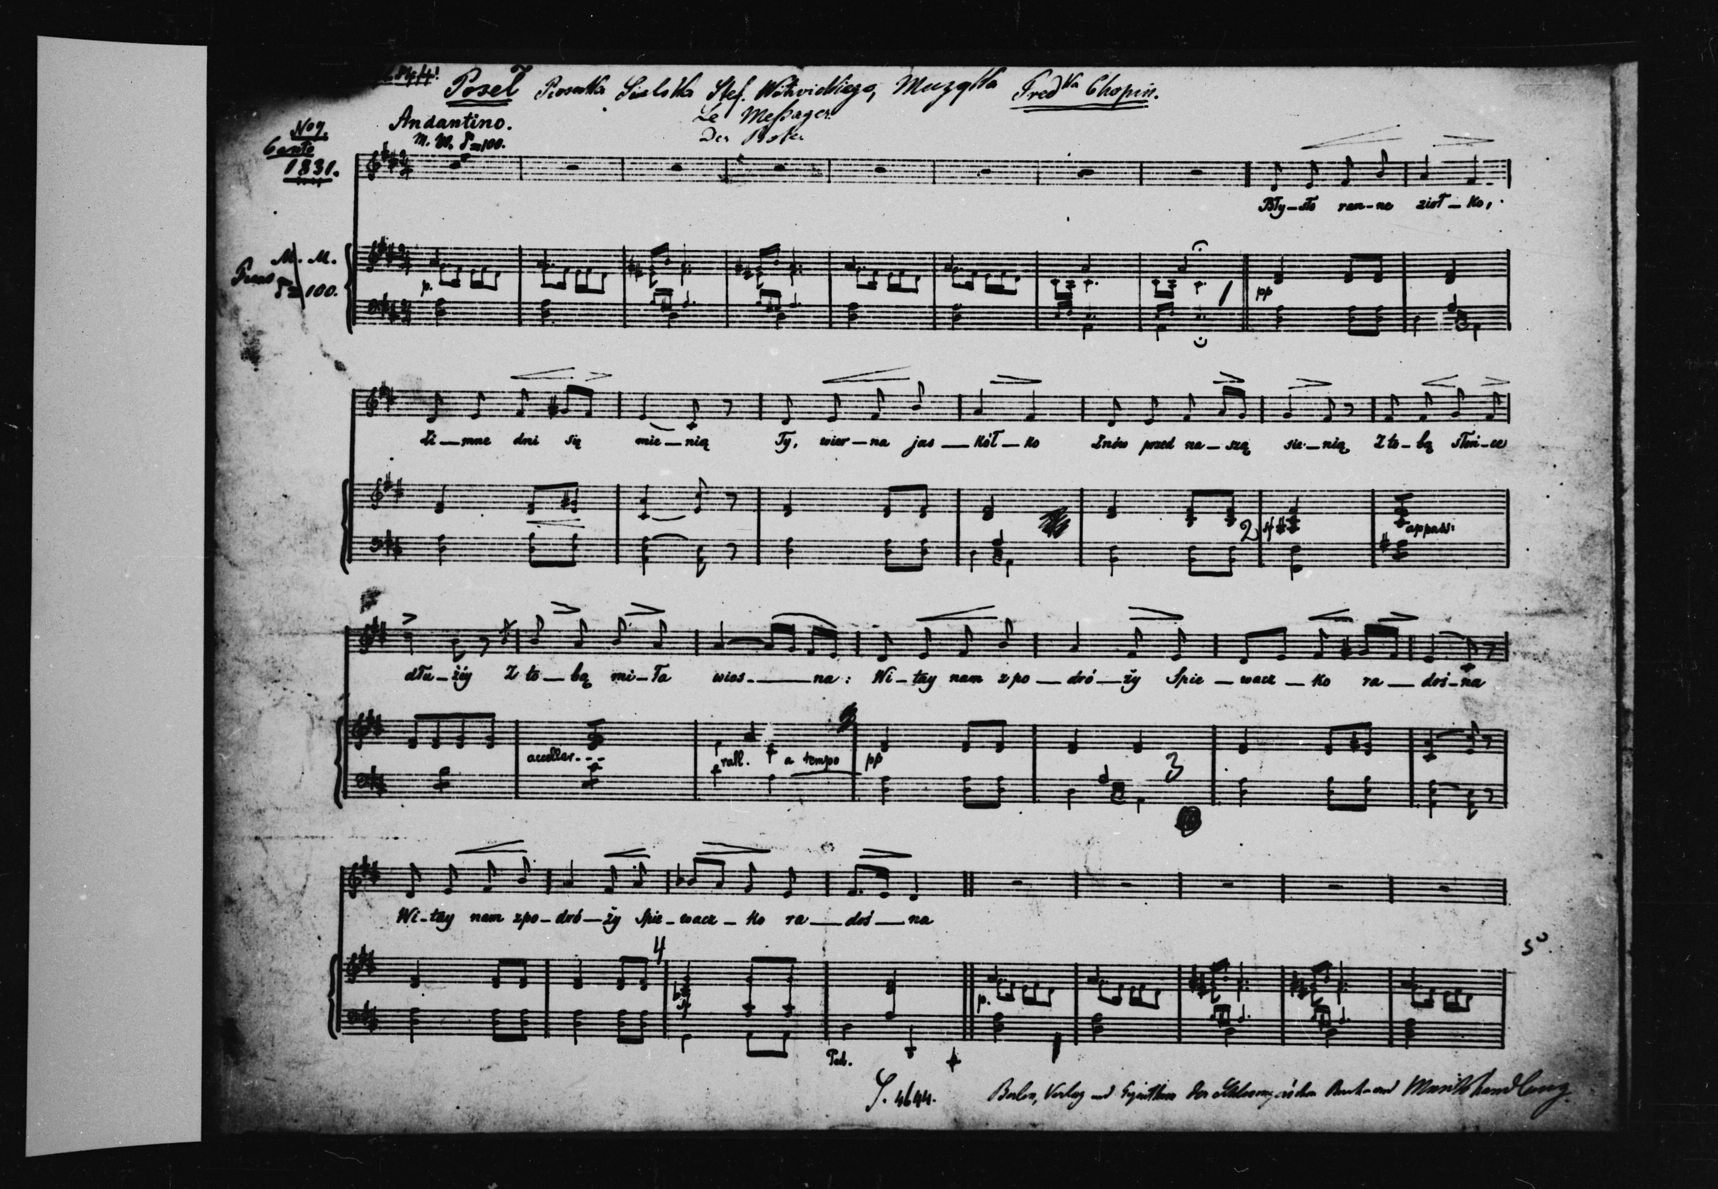 Poseł Piosnka Sielska Stef. Witwickiego, Muzyka Fred<sup>ka</sup> Chopin.
Le Messager
Der Bote
Andantino.
M. M. = 100.
No 7.
1831.
M. M.
= 100.
p.
1
pp
Bły—sło ran—ne zioł—ko,
Zi—mne dni się mie—nią Ty, wier—na jas—kół—ko Znów przed na—szą sie—nią Z to—bą słoń—ce
2
appass:
dłu—żéy Z to—bą mi—ła wios—na: Wi—tay nam z po—dró—ży Śpie—wacz—ko ra—doś—na
acceller---
rall.
a tempo
pp
3
Wi—tay nam z po—dró—ży Śpie—wacz—ko ra—doś—na
4
p.
Ped.
5
S. 4644.
Verlag und Eigenthum der Schlesinger'schen Buch und Musikhandlung.